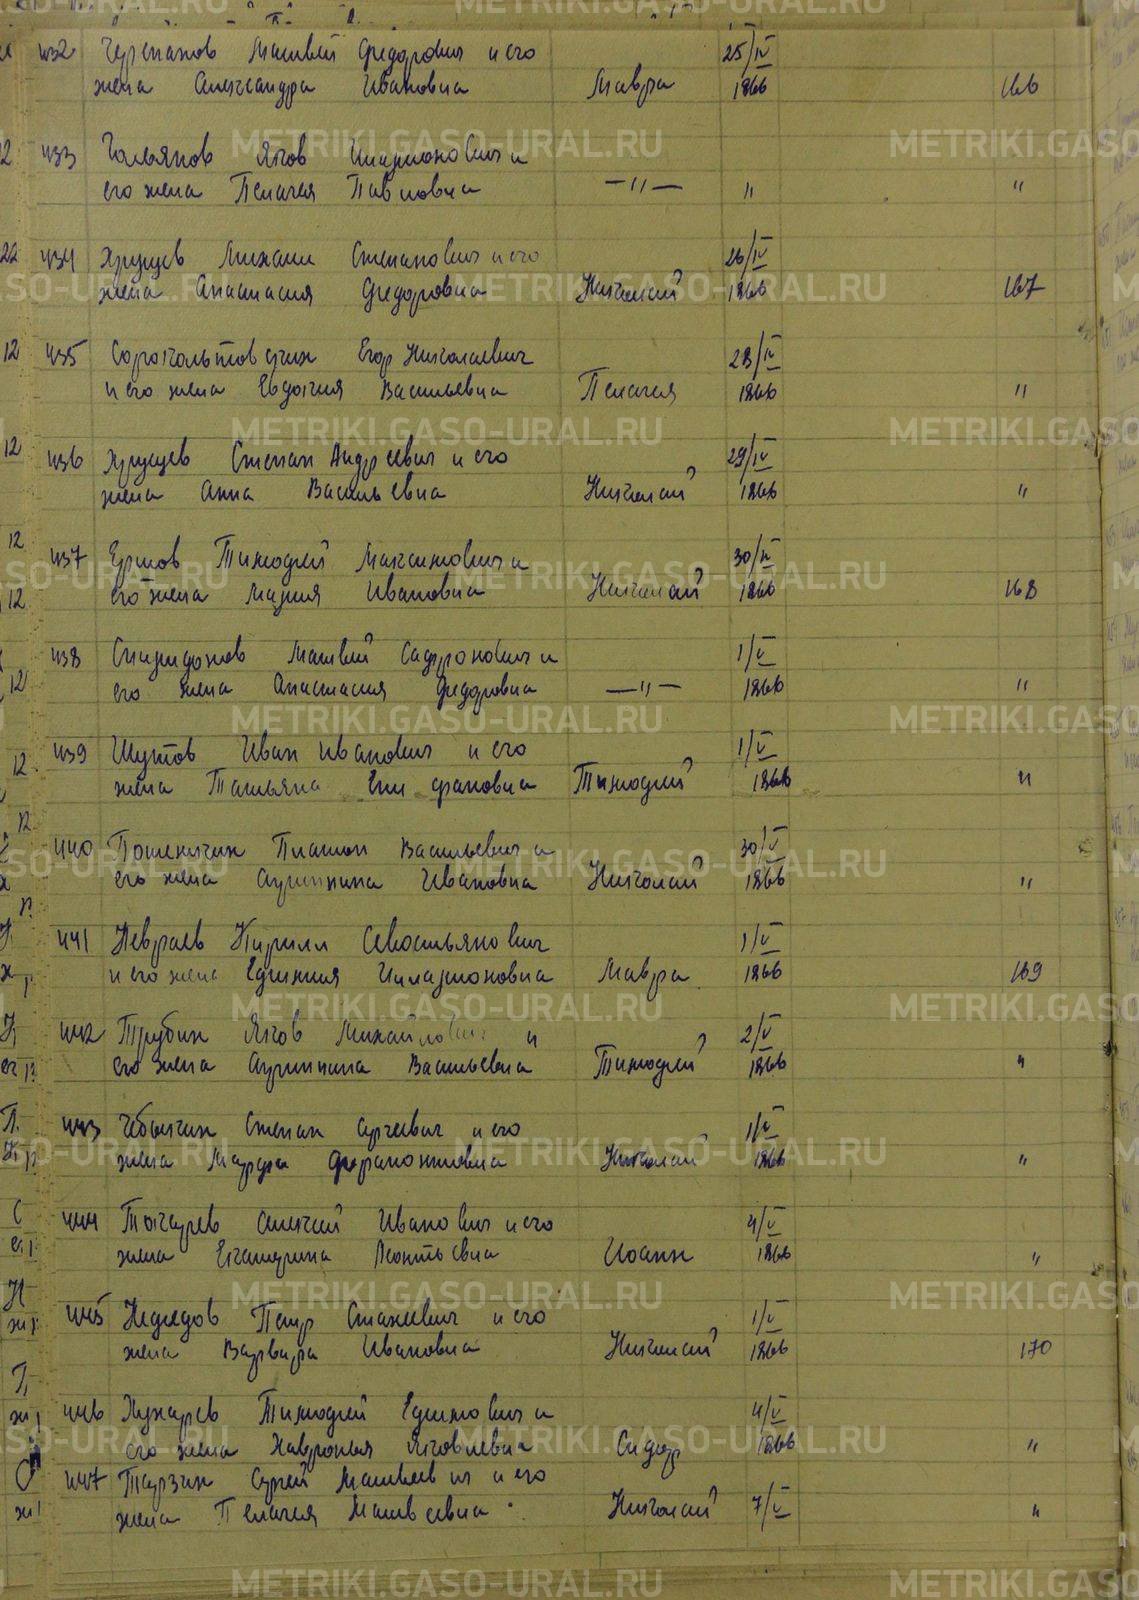 432 Черепанов Матвей Федорович и его 25/IV
жена Александра Ивановна Мавра 1866 166
433 Гальянов Яков Илларионович и
его жена Пелагея Павловна —"— " "
434 Хрущев Михаил Степанович и его 26/IV
жена Анастасия Федоровна Николай 1866 167
12 435 Егор Николаевич 28/IV
и его жена Евдокия Васильевна Пелагея 1866 "
12 436 Хрущев Степан Андреевич и его 29/IV
жена Анна Васильевна Николай 1866 "
12 437 Ершов Тимофей Максимович и 30/IV
12 его жена Мария Ивановна Николай 1866 168
438 Спиридонов Матвей Сафронович и 1/V
12 его жена Анастасия Федоровна —"— 1866 "
439 Шутов Иван Иванович и его 1/V
12 жена Татьяна Епифановна Тимофей 1866 "
440 Платон Васильевич и 30/V
его жена Агрипина Ивановна Николай 1866 "
441 Невраев Кирилл Севостьянович 1/V
и его жена Ефимия Илларионовна Мавра 1866 169
442 Трубин Яков Михайлович и 2/V
его жена Агрипина Васильевна Тимофей 1866 "
443 Чебыкин Степан Сергеевич и его 1/V
жена Марфа Ферапонтовна Николай 1866 "
444 Токарев Алексей Иванович и его 4/V
жена Екатерина Леонтьевна Иоанн 1866 "
445 Нефедов Петр и его 1/V
жена Варвара Ивановна Николай 1866 170
446 Тимофей Ефимович и 4/V
его жена Хаврония Яковлевна Сидор 1866 "
447 Сергей Матвеевич и его
жена Пелагея Матвеевна Николай 7/V "
METRIKI.GASO-URAL.RU